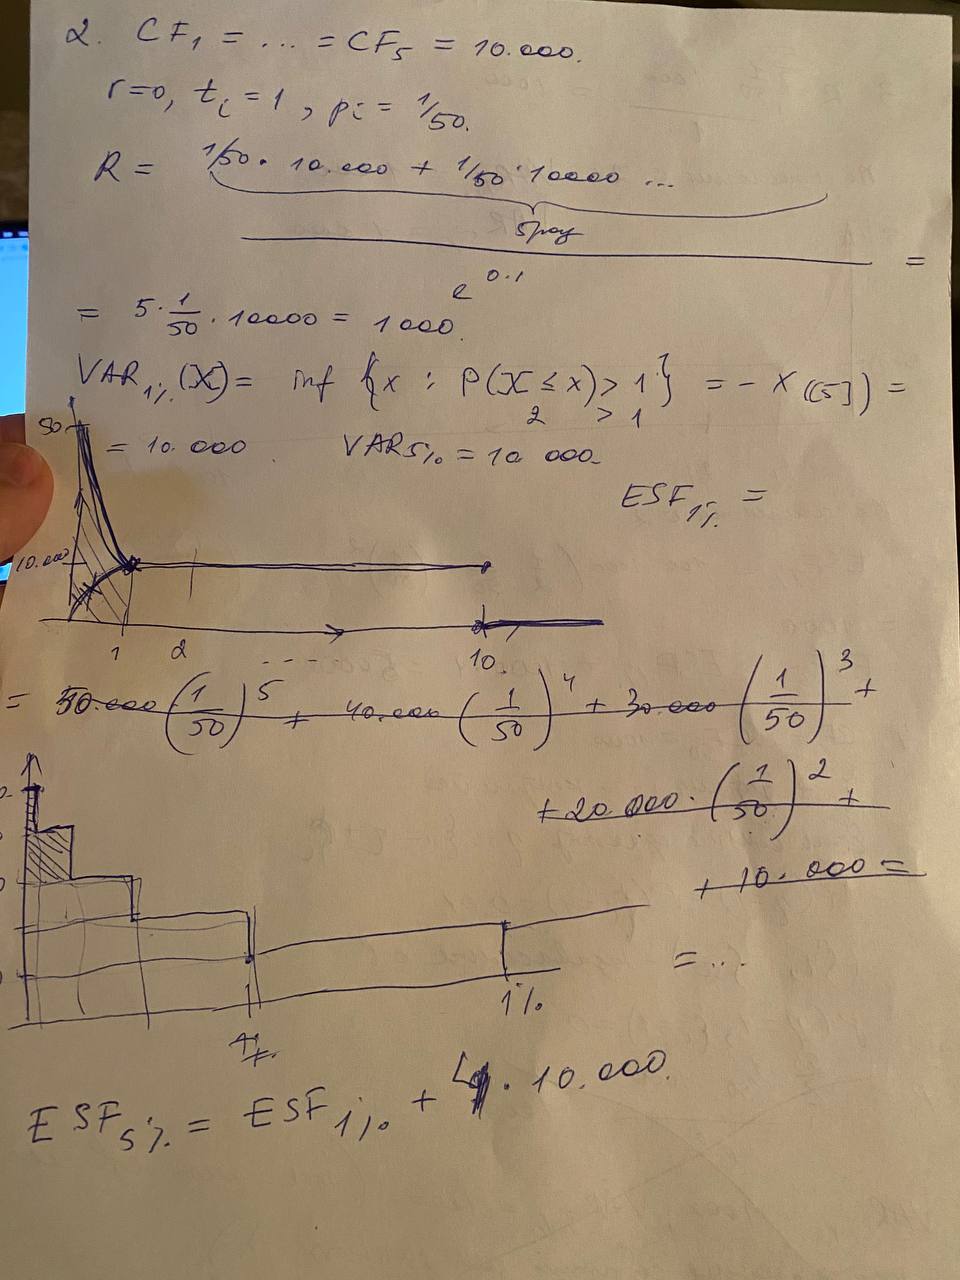 2. CF₁ = ... = CF₅ = 10.000.
r=0, tᵢ = 1, pᵢ = 1/50.
R = 1/50 · 10.000 + 1/50 · 10000 ...
5 раз
=
e^0.1
= 5 · 1/50 · 10000 = 1000.
VAR₁%(X) = inf {x : P(X ≤ x) > 1} = - X([5]) =
2 > 1
50
= 10.000. VAR₅% = 10 000.
ESF₁% =
10.000
1 2 ... 10
= 50.000 (1/50)^5 + 40.000 (1/50)^4 + 30.000 (1/50)^3 +
+ 20.000 · (1/50)^2 +
+ 10.000 =
= ...
1%
ESF₅% = ESF₁% + 4 · 10.000.